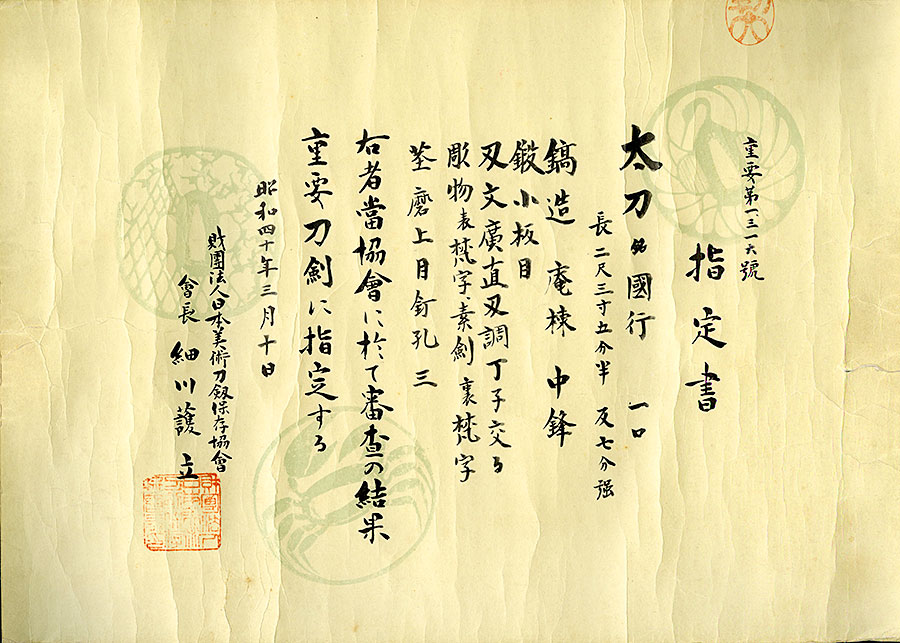 重要第一、三一六號
指定書
太刀 銘 國行 一口
長 二尺三寸五分半 反七分强
鎬造 庵棟 中鋒
鍛 小板目
刃文 廣直刃調丁子交る
彫物 表梵字、素劍 裏梵字
茎 磨上 目釘孔 三
右者當協會に於て審査の結果
重要刀劍に指定する
昭和四十年三月十日
財團法人日本美術刀劔保存協會
會長 細川護立